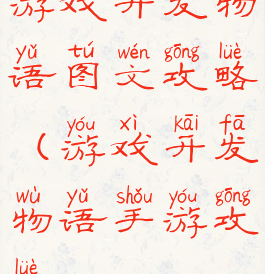 游戏开发物
yǔ tú wén gōng lüè
语图文攻略
yóu xì kāi fā
（游戏开发
wù yǔ shǒu yóu gōng
物语手游攻
lüè